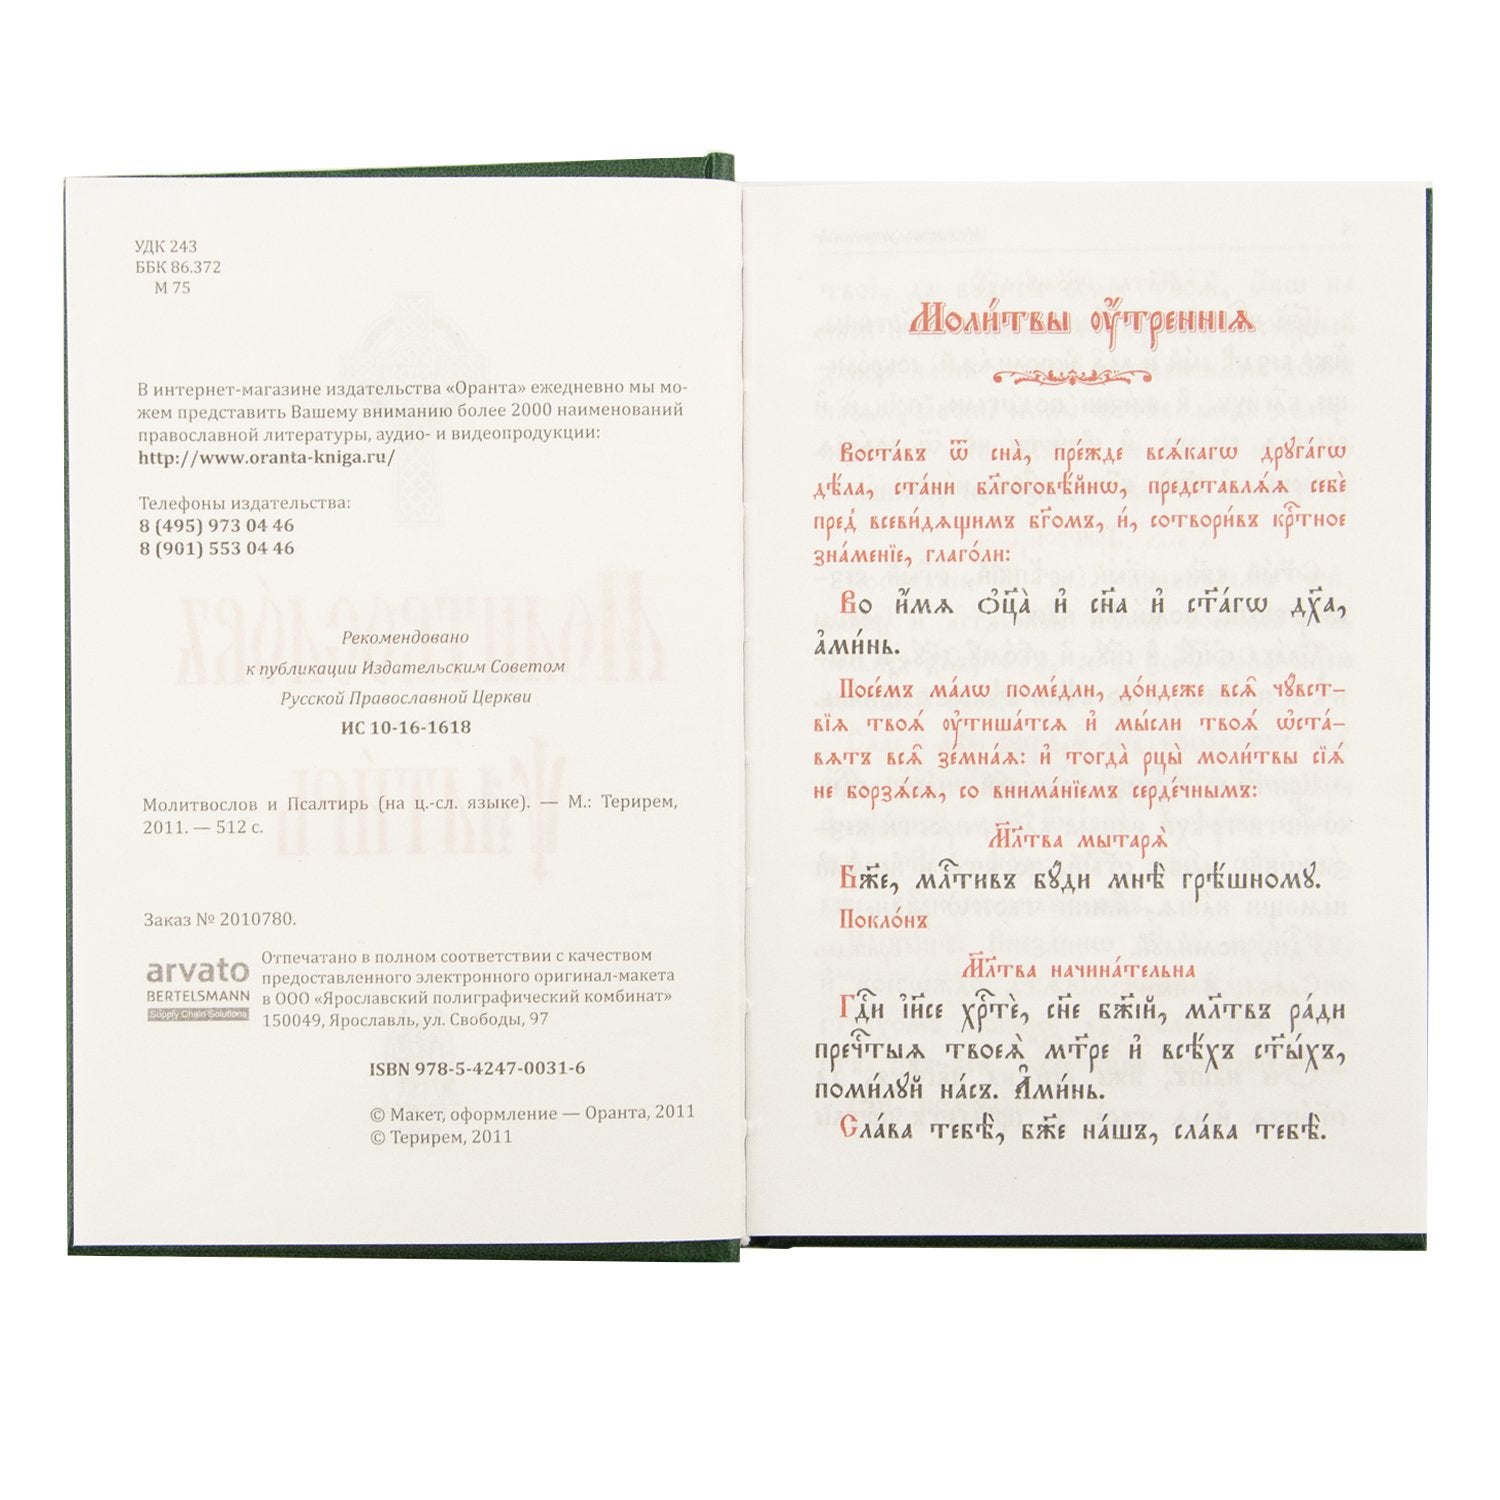 УДК 243
ББК 86.372
М 75
В интернет-магазине издательства «Оранта» ежедневно мы мо-
жем представить Вашему вниманию более 2000 наименований
православной литературы, аудио- и видеопродукции:
http://www.oranta-kniga.ru/
Телефоны издательства:
8 (495) 973 04 46
8 (901) 553 04 46
Рекомендовано
к публикации Издательским Советом
Русской Православной Церкви
ИС 10-16-1618
Молитвослов и Псалтирь (на ц.-сл. языке). — М.: Терирем,
2011. — 512 с.
Заказ № 2010780.
arvato
BERTELSMANN
Supply Chain Solutions
Отпечатано в полном соответствии с качеством
предоставленного электронного оригинал-макета
в ООО «Ярославский полиграфический комбинат»
150049, Ярославль, ул. Свободы, 97
ISBN 978-5-4247-0031-6
© Макет, оформление — Оранта, 2011
© Терирем, 2011
Моли́твы оу҆́треннїѧ
Воста́въ ѿ сна̀, пре́жде всѧ́кагѡ дрꙋга́гѡ
дѣ́ла, ста́ни бл҃гоговѣ́йнѡ, представлѧ́ѧ себѐ
пред̾ всеви́дѧщимъ бг҃омъ, и҆, сотвори́въ крⷭ҇тное
зна́менїе, глаго́ли:
Во и҆́мѧ ѻ҆ц҃а̀ и҆ сн҃а и҆ ст҃а́гѡ дх҃а,
а҆ми́нь.
Посе́мъ ма́лѡ поме́дли, до́ндеже всѧ̑ чꙋ́вст–
вїѧ твоѧ̑ оу҆тиша́тсѧ и҆ мы́сли твоѧ̑ ѡ҆ста́–
вѧтъ всѧ̑ земна̑ѧ: и҆ тогда̀ рцы̀ моли́твы сїѧ̑
не борзѧ́сѧ, со внима́нїемъ серде́чнымъ:
Мл҃тва мытарѧ̀
Бж҃е, млⷭ҇тивъ бꙋ́ди мнѣ̀ грѣ́шномꙋ.
Покло́нъ
Мл҃тва начина́тельна
Гдⷭ҇и і҆и҃се хрⷭ҇тѐ, сн҃е бж҃їй, мл҃твъ ра́ди
пречⷭ҇тыѧ твоеѧ̀ мт҃ре и҆ всѣ́хъ ст҃ы́хъ,
поми́лꙋй на́съ. А҆ми́нь.
Сла́ва тебѣ̀, бж҃е на́шъ, сла́ва тебѣ̀.